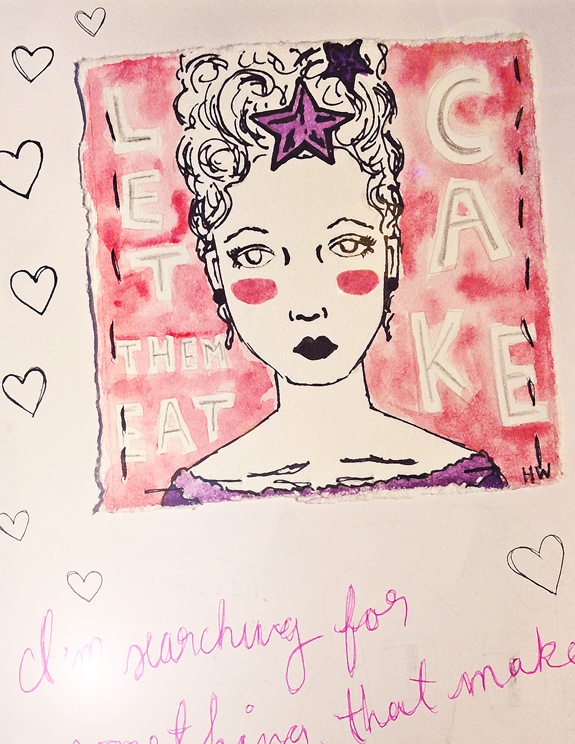 LET
THEM
EAT
CAKE
HW
I'm searching for
something that make